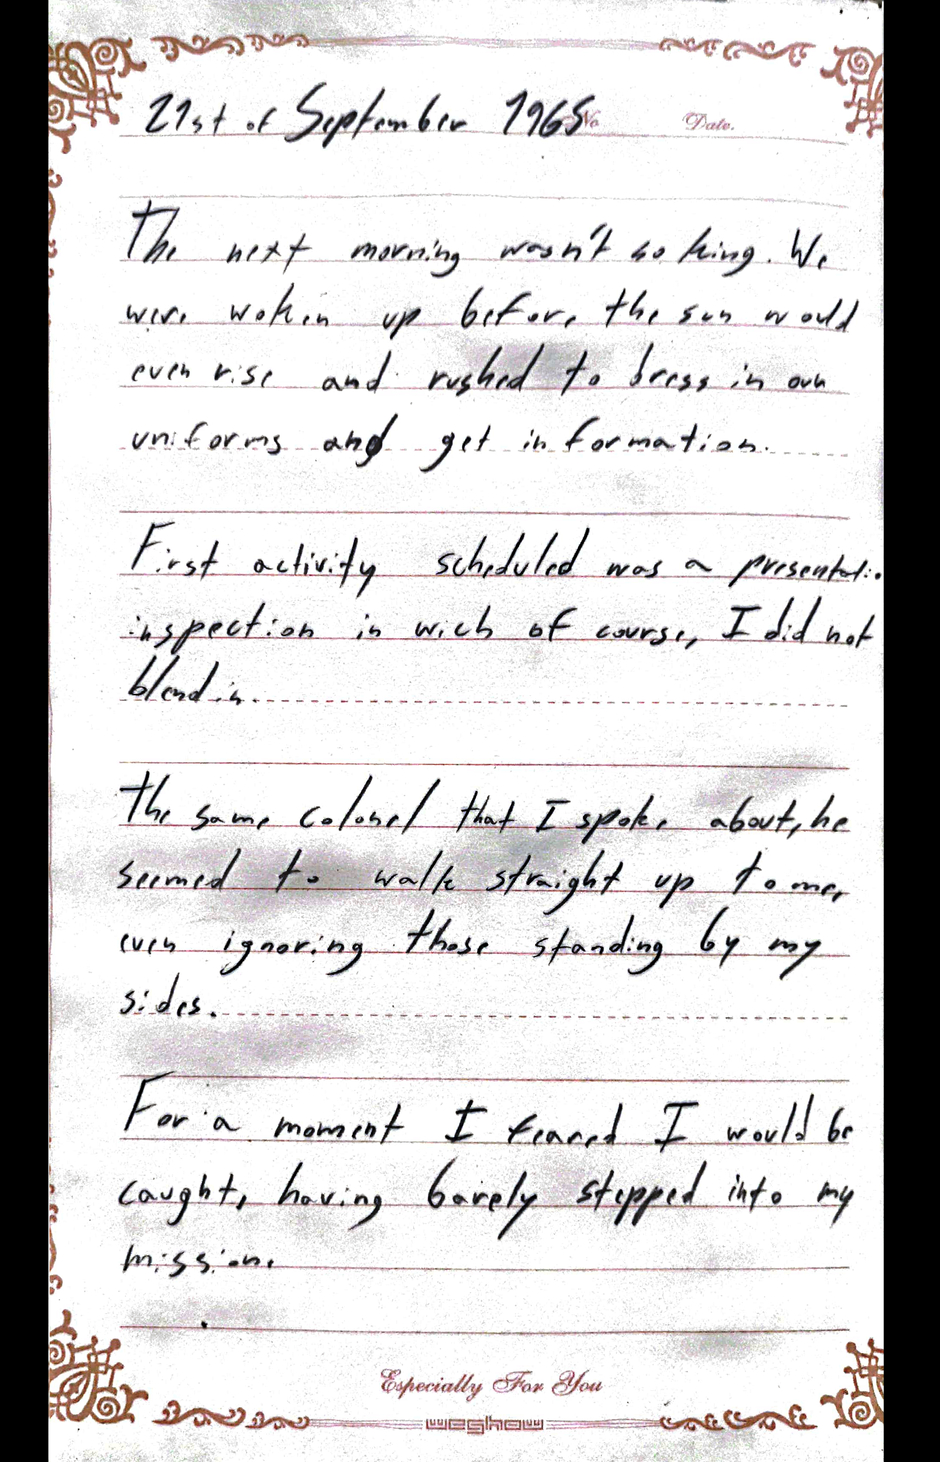 21st of September 1965 No Date.
The next morning wasn't so king. We
were woken up before the sun would
even rise and rushed to dress in our
uniforms and get in formation.
First activity scheduled was a presentatio
inspection in wich of course, I did not
blend in.
the same colonel that I spoke about, he
seemed to walk straight up to me,
even ignoring those standing by my
sides.
For a moment I feared I would be
caught, having barely stepped into my
mission.
Especially For You